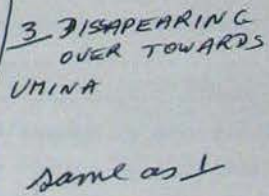 3 DISAPEARING
OVER TOWARDS
UMINA
same as 1